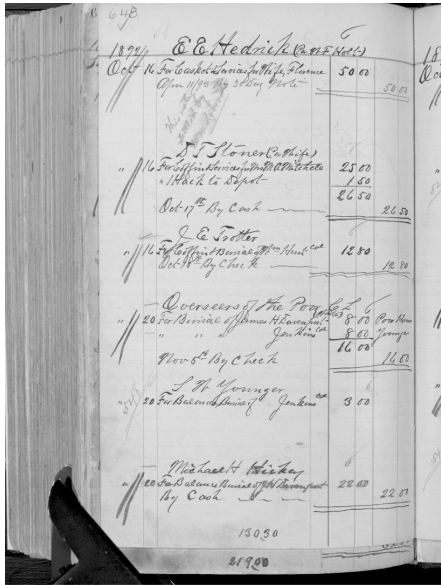 648
1892 E E Hedrick (Per W F Holt)
Oct 16 For Casket & Services for Wife, Florence 50 00
Apr 11/93 By 30 Day Note 50 00
D T Stoner (Per Wife)
" 16 For Coffin & Services for Mrs M A Mitchell 25 00
" 1 Hack to Depot 1 50
26 50
Oct 17th By Cash 26 50
J E Trotter
" 16 For Coffin & Burial of Wm Hunt col 12 80
Oct 18th By Check 12 80
Overseers of the Poor C L
" 20 For Burial of James H Davenport 8 00 Poor House
" " " Jenkins col 8 00 Younger
16 00
Nov 5th By Check 16 00
S W Younger
" 20 For Balance Burial of Jenkins col 3 00
Michael H Hickey
" 20 For Balance Burial of J H Davenport 22 00
By Cash 22 00
13030
21900